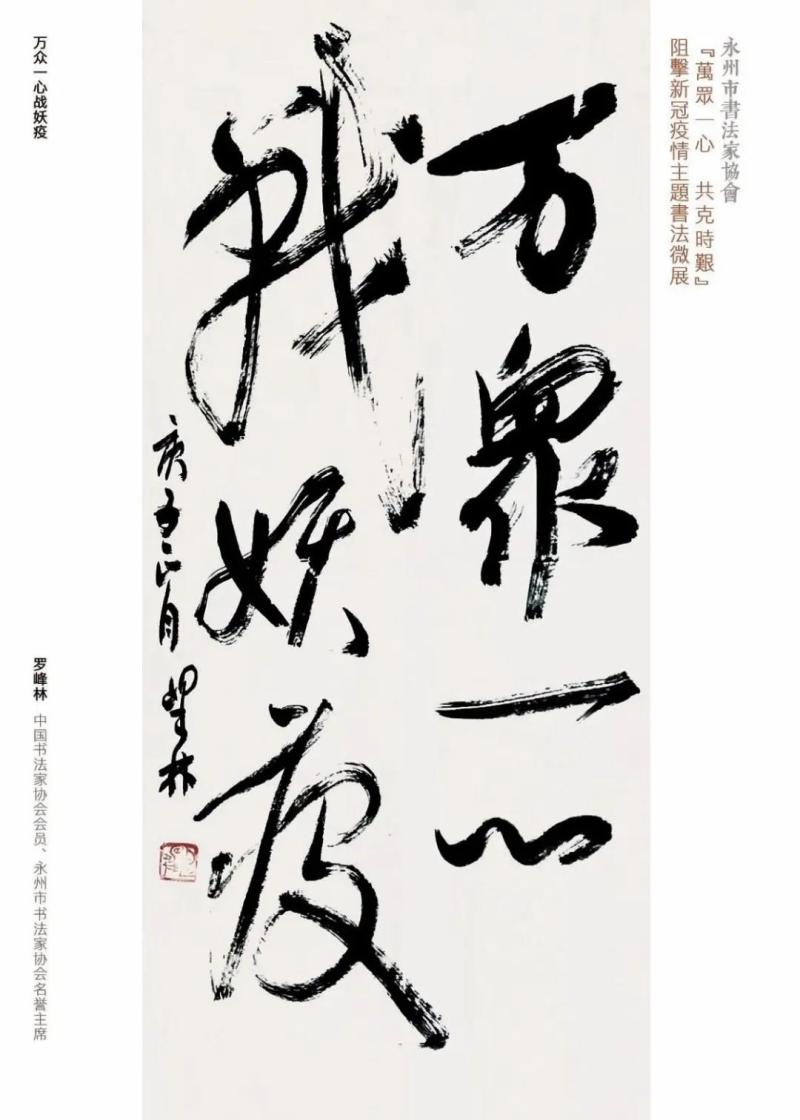 永州市書法家協會
『萬眾一心 共克時艱』
阻擊新冠疫情主題書法微展
万眾一心
戰妖疫
庚子正月 峰林
万众一心战妖疫
罗峰林 中国书法家协会会员、永州市书法家协会名誉主席